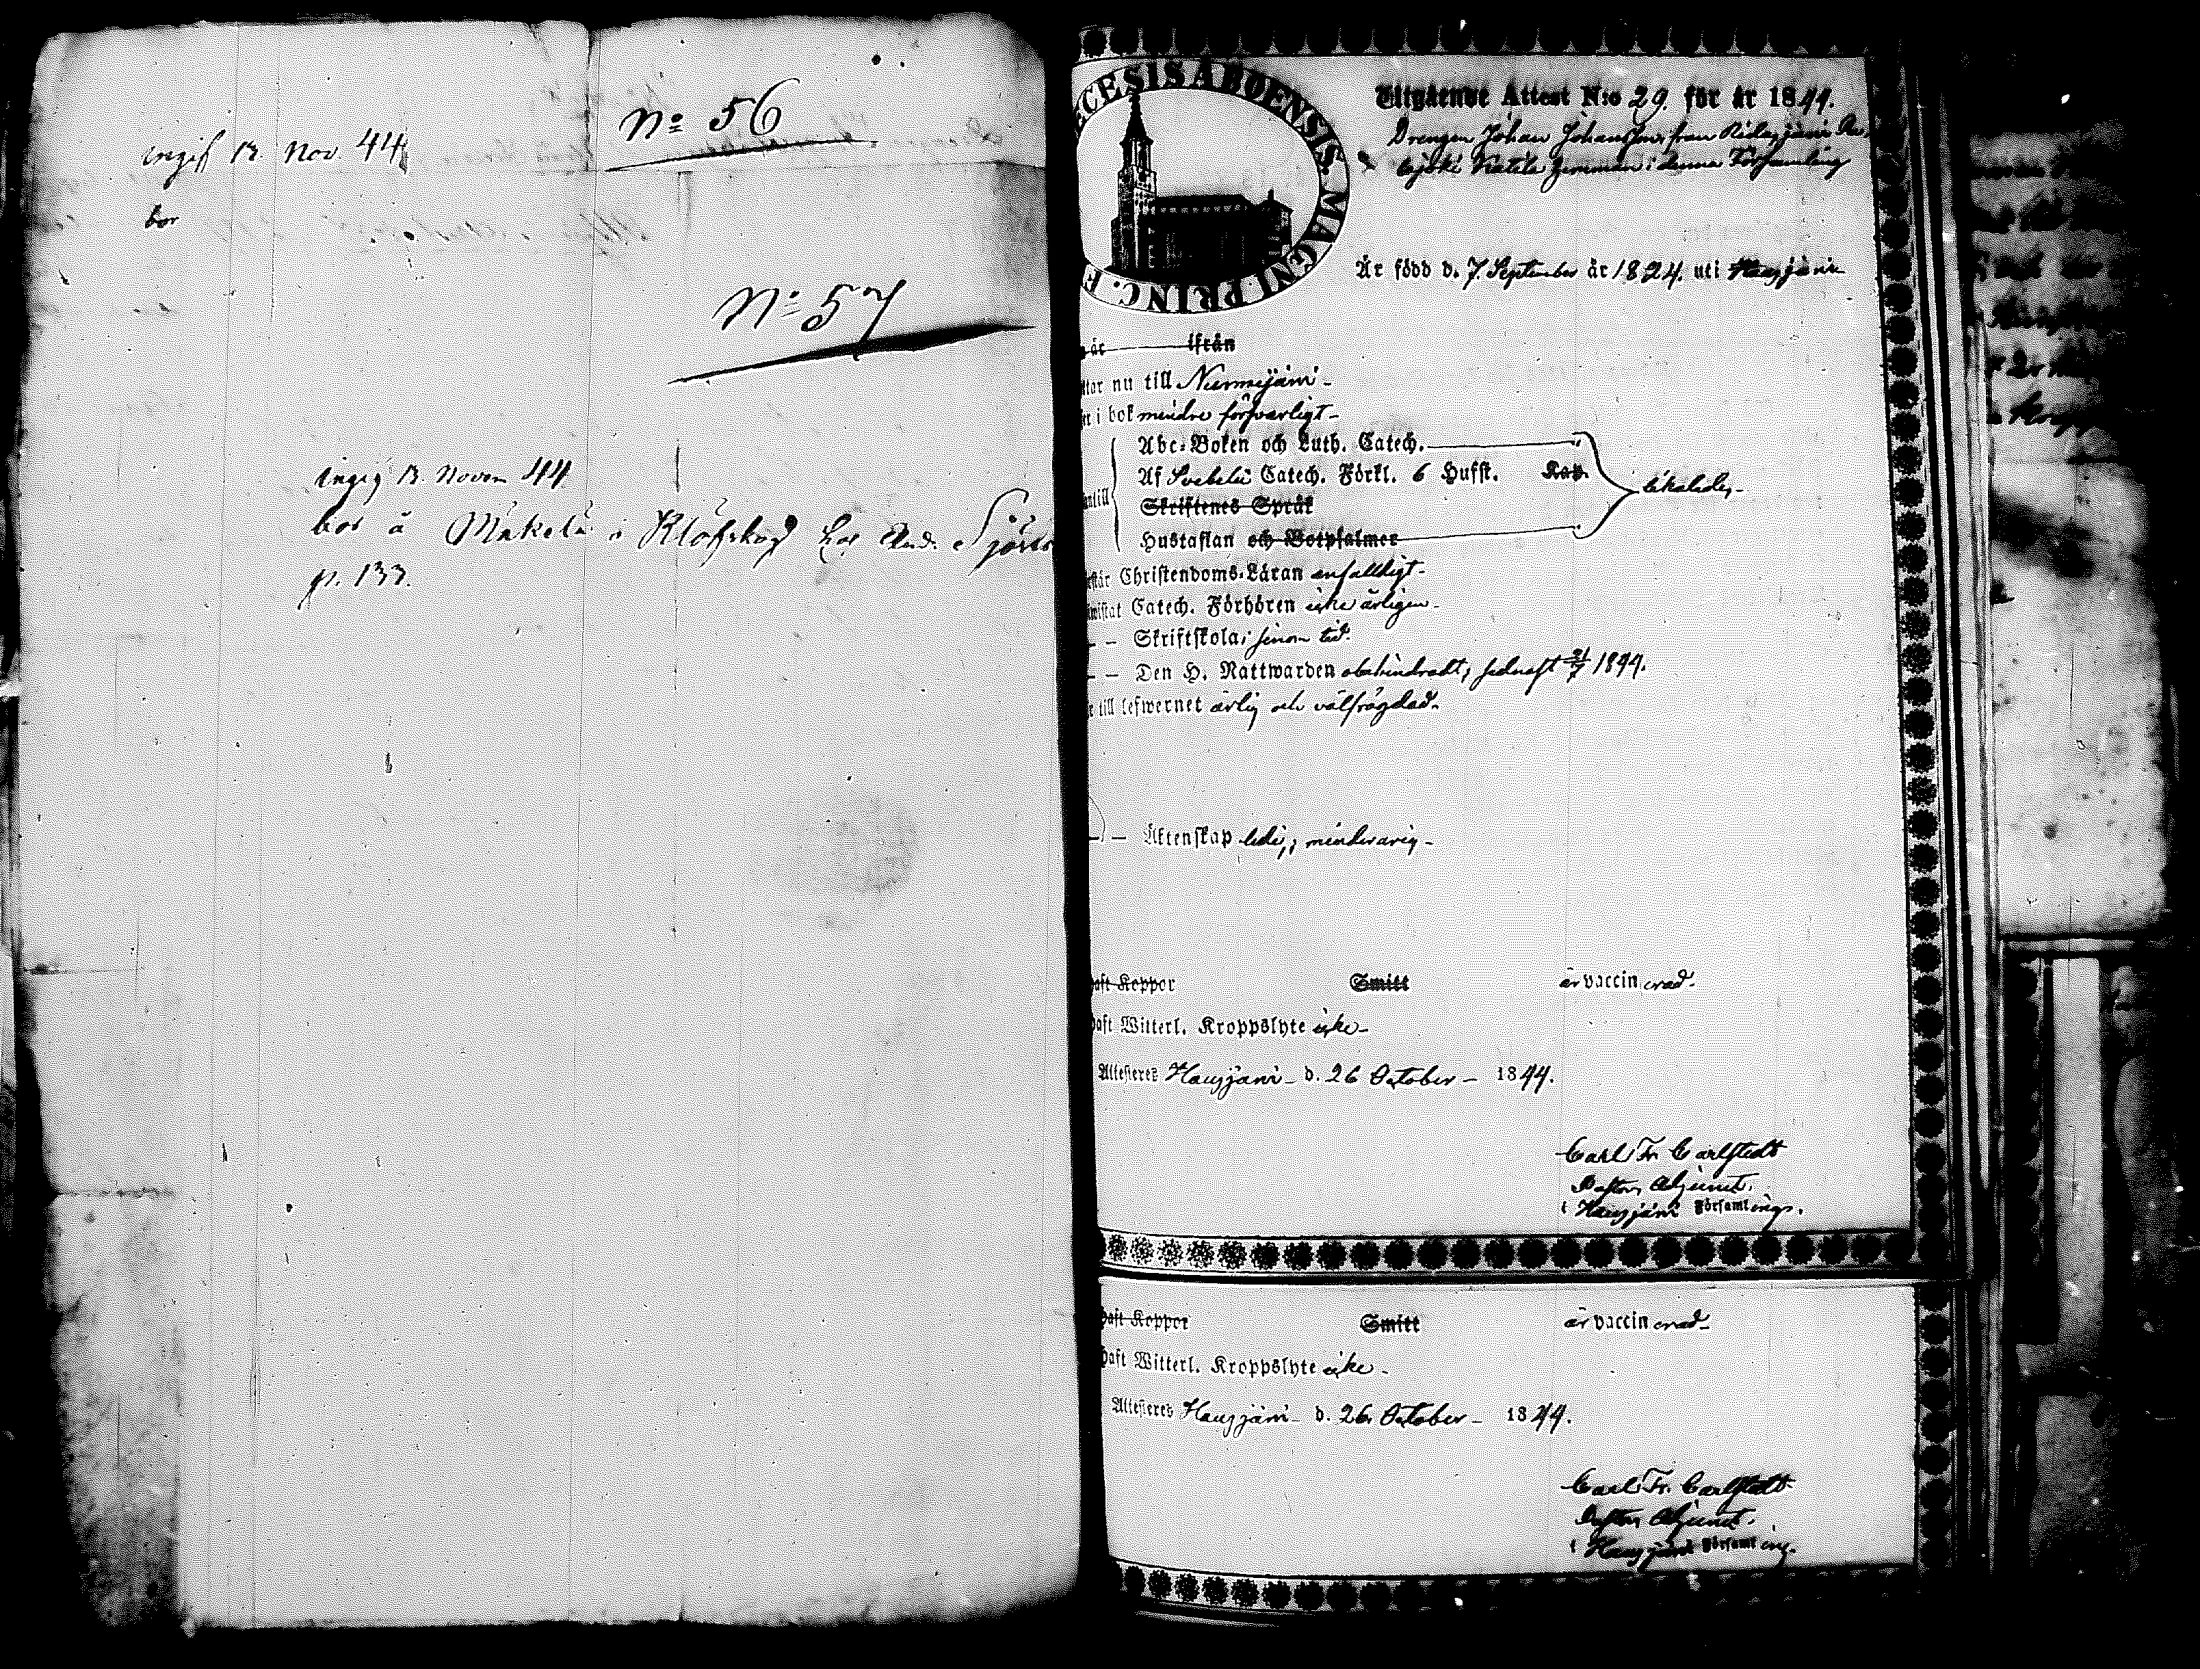 No 56
ingif 13. Nov. 44
bor
No 57
ingif 13. Novem 44
bor å Mäkelä i Klöfskog hos And. Sjöros
p. 133.
ECESIS ABOENSIS MAGNI PRINC. F
Utgående Attest N:o 29. för år 1844.
Drengen Johan Johansson, från
Kätilä hemman i denna Församling
Är född d. 7. September år 1824. uti Hausjärvi
är ifrån
ttar nu till Nurmijärvi
er i bok mindre försvarligt
Abc-Boken och Luth. Catech.
Af Svebelii Catech. Förkl. 6 Hufst. Kap.
antill likaledes
Skriftenes Språk
Hustaflan och Botpsalmer
rstår Christendoms-Läran enfaldigt
wistat Catech. Förhören icke årligen
— — Skriftskola i sinom tid.
— — Den H. Nattwarden obehindradt; sednast 21/7 1844.
e till lefwernet ärlig och välfrägdad.
— — Äktenskap ledig; minderårig
haft Koppor Smitt är vaccinerad.
haft Witterl. Kroppslyte icke
Attesteres Hausjärvi d. 26 October 1844.
Carl Fr. Carlstedt
Pastors Adjunct.
i Hausjärvi Församlings.
haft Koppor Smitt är vaccinerad
haft Witterl. Kroppslyte icke
Attesteres Hausjärvi d. 26 October 1844.
Carl Fr. Carlstedt
Pastors Adjunct.
i Hausjärvi Församling.